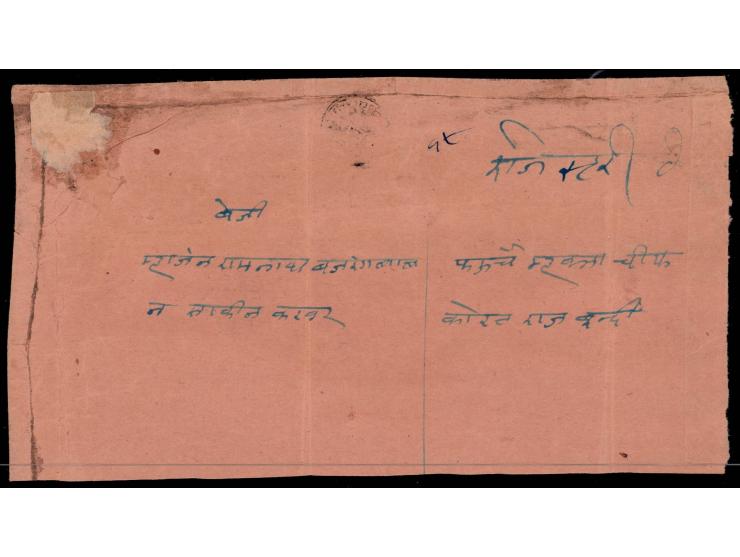 रजिस्टरी
बेजी
म्हाजन रामनाथ बजरंगलाल
न साकीन करवर
फहुचै म्हकमा चीफ
कोरट राज बून्दी